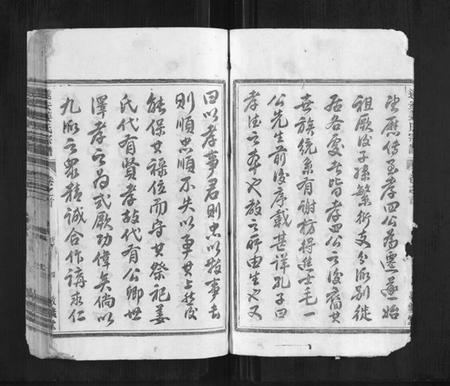 生應傳至孝四公為遷遂始
祖厥後子孫繁衍支分派別從
居各處者皆孝四公之後裔其
世族統系有謝枋得進士毛一
公先生前後序載甚詳孔子曰
孝德之本也教之所由生也又
曰以孝事君則忠以敬事長
則順忠順不失以事其上然後
能保其祿位而守其祭祀姜
氏代有賢孝故代有公卿世
澤孝之為式厥功偉矣倘以
九派之眾積誠合作講求仁